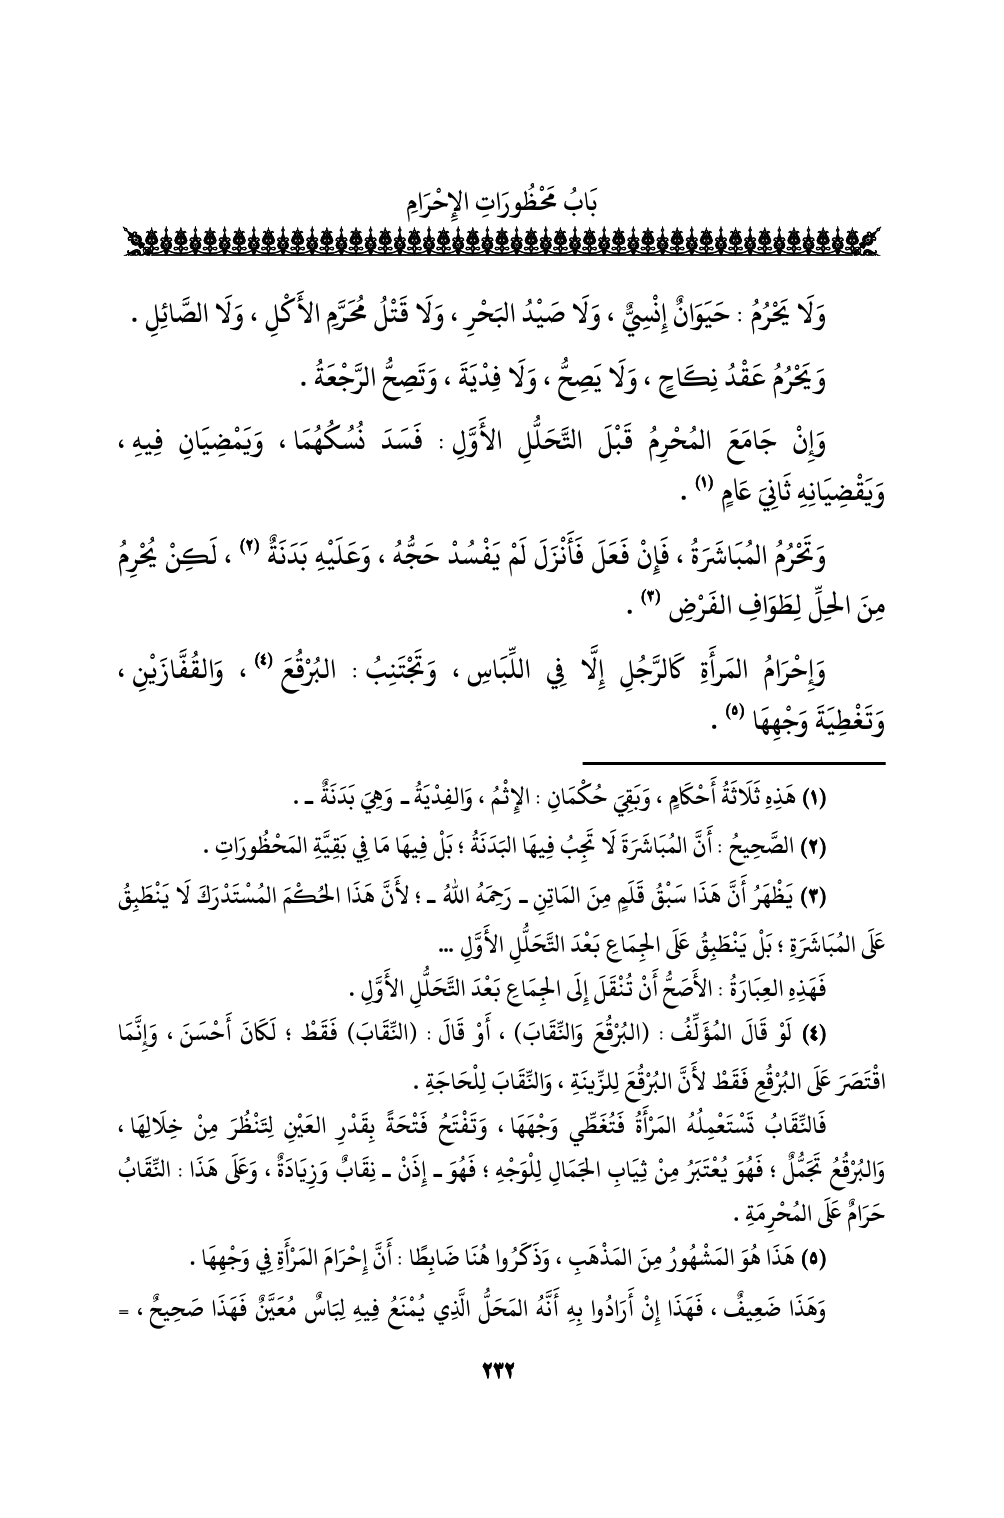 بَابُ مَحْظُورَاتِ الإِحْرَامِ
وَلَا يَحْرُمُ : حَيَوَانٌ إِنْسِيٌّ ، وَلَا صَيْدُ البَحْرِ ، وَلَا قَتْلُ مُحَرَّمِ الأَكْلِ ، وَلَا الصَّائِلِ .
وَيَحْرُمُ عَقْدُ نِكَاحٍ ، وَلَا يَصِحُّ ، وَلَا فِدْيَةَ ، وَتَصِحُّ الرَّجْعَةُ .
وَإِنْ جَامَعَ المُحْرِمُ قَبْلَ التَّحَلُّلِ الأَوَّلِ : فَسَدَ نُسُكُهُمَا ، وَيَمْضِيَانِ فِيهِ ،
وَيَقْضِيَانِهِ ثَانِيَ عَامٍ (١) .
وَتَحْرُمُ المُبَاشَرَةُ ، فَإِنْ فَعَلَ فَأَنْزَلَ لَمْ يَفْسُدْ حَجُّهُ ، وَعَلَيْهِ بَدَنَةٌ (٢) ، لَكِنْ يُحْرِمُ
مِنَ الحِلِّ لِطَوَافِ الفَرْضِ (٣) .
وَإِحْرَامُ المَرأَةِ كَالرَّجُلِ إِلَّا فِي اللِّبَاسِ ، وَتَجْتَنِبُ : البُرْقُعَ (٤) ، وَالقُفَّازَيْنِ ،
وَتَغْطِيَةَ وَجْهِهَا (٥) .
(١) هَذِهِ ثَلَاثَةُ أَحْكَامٍ ، وَبَقِيَ حُكْمَانِ : الإِثْمُ ، وَالفِدْيَةُ ـ وَهِيَ بَدَنَةٌ ـ .
(٢) الصَّحِيحُ : أَنَّ المُبَاشَرَةَ لَا تَجِبُ فِيهَا البَدَنَةُ ؛ بَلْ فِيهَا مَا فِي بَقِيَّةِ المَحْظُورَاتِ .
(٣) يَظْهَرُ أَنَّ هَذَا سَبْقُ قَلَمٍ مِنَ المَاتِنِ ـ رَحِمَهُ اللهُ ـ ؛ لأَنَّ هَذَا الحُكْمَ المُسْتَدْرَكَ لَا يَنْطَبِقُ
عَلَى المُبَاشَرَةِ ؛ بَلْ يَنْطَبِقُ عَلَى الجِمَاعِ بَعْدَ التَّحَلُّلِ الأَوَّلِ ...
فَهَذِهِ العِبَارَةُ : الأَصَحُّ أَنْ تُنْقَلَ إِلَى الجِمَاعِ بَعْدَ التَّحَلُّلِ الأَوَّلِ .
(٤) لَوْ قَالَ المُؤَلِّفُ : (البُرْقُعَ وَالنِّقَابَ) ، أَوْ قَالَ : (النِّقَابَ) فَقَطْ ؛ لَكَانَ أَحْسَنَ ، وَإِنَّمَا
اقْتَصَرَ عَلَى البُرْقُعِ فَقَطْ لأَنَّ البُرْقُعَ لِلزِّينَةِ ، وَالنِّقَابَ لِلْحَاجَةِ .
فَالنِّقَابُ تَسْتَعْمِلُهُ المَرْأَةُ فَتُغَطِّي وَجْهَهَا ، وَتَفْتَحُ فَتْحَةً بِقَدْرِ العَيْنِ لِتَنْظُرَ مِنْ خِلَالِهَا ،
وَالبُرْقُعُ تَجَمُّلٌ ؛ فَهُوَ يُعْتَبَرُ مِنْ ثِيَابِ الجَمَالِ لِلْوَجْهِ ؛ فَهُوَ ـ إِذَنْ ـ نِقَابٌ وَزِيَادَةٌ ، وَعَلَى هَذَا : النِّقَابُ
حَرَامٌ عَلَى المُحْرِمَةِ .
(٥) هَذَا هُوَ المَشْهُورُ مِنَ المَذْهَبِ ، وَذَكَرُوا هُنَا ضَابِطًا : أَنَّ إِحْرَامَ المَرْأَةِ فِي وَجْهِهَا .
وَهَذَا ضَعِيفٌ ، فَهَذَا إِنْ أَرَادُوا بِهِ أَنَّهُ المَحَلُّ الَّذِي يُمْنَعُ فِيهِ لِبَاسٌ مُعَيَّنٌ فَهَذَا صَحِيحٌ ، =
٢٣٢